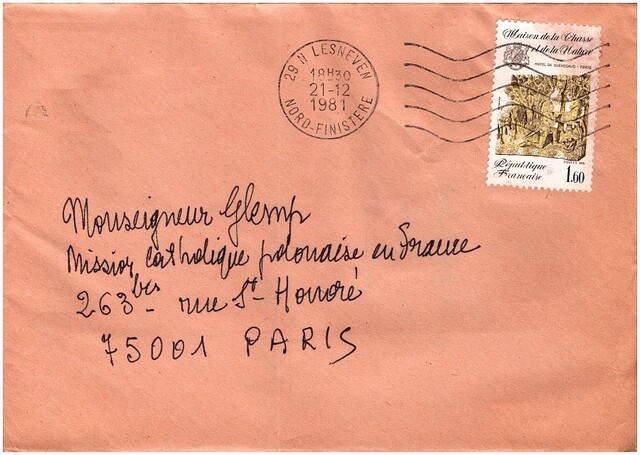 29 N LESNEVEN
18H30
21-12
1981
NORD-FINISTERE
Maison de la Chasse
et de la Nature
HOTEL DE GUENEGAUD - PARIS
République
Française
1.60
Monseigneur Glemp
Mission Catholique polonaise en France
263 bis - rue St-Honoré
75001 PARIS